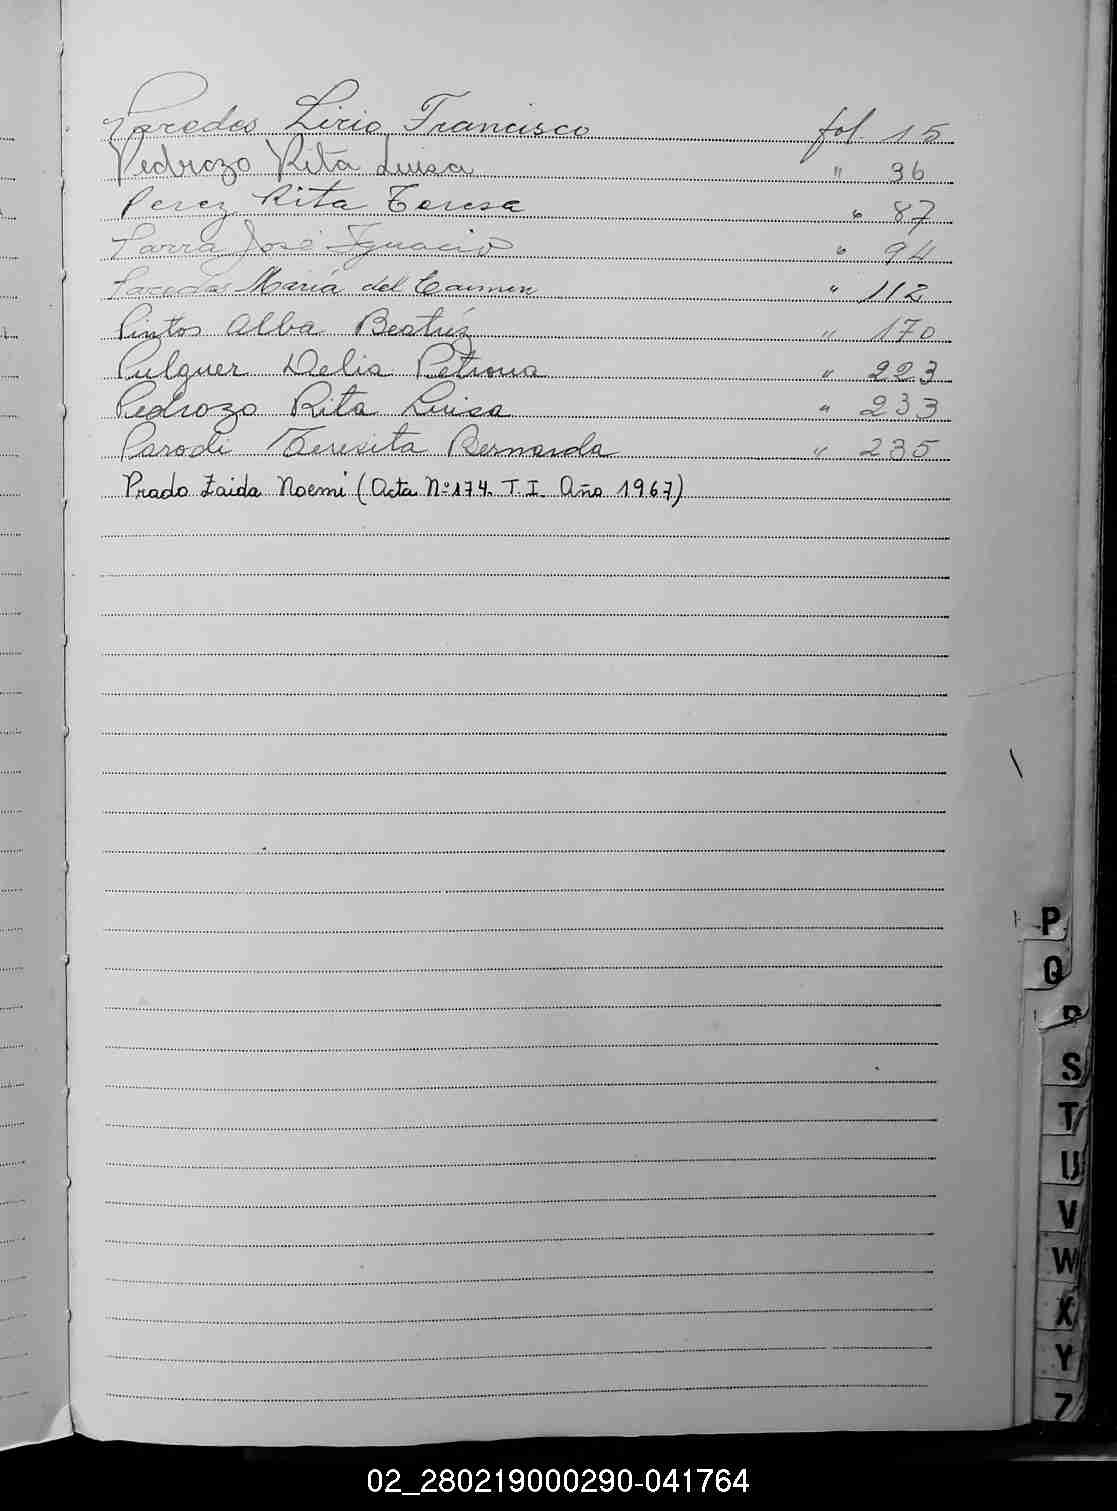 Paredes Lirio Francisco fol. 15
Pedrozo Rita Luisa " 36
Perez Rita Teresa " 87
Parra José Ignacio " 94
Paredes Maria del Carmen " 112
Pintos Alba Beatriz " 170
Pulguer Delia Petrona " 223
Pedrozo Rita Luisa " 233
Parodi Teresita Bernarda " 235
Prado Zaida Noemi (Acta Nº 174. T.I. Año 1967)
P
Q
R
S
T
U
V
W
X
Y
Z
02_280219000290-041764